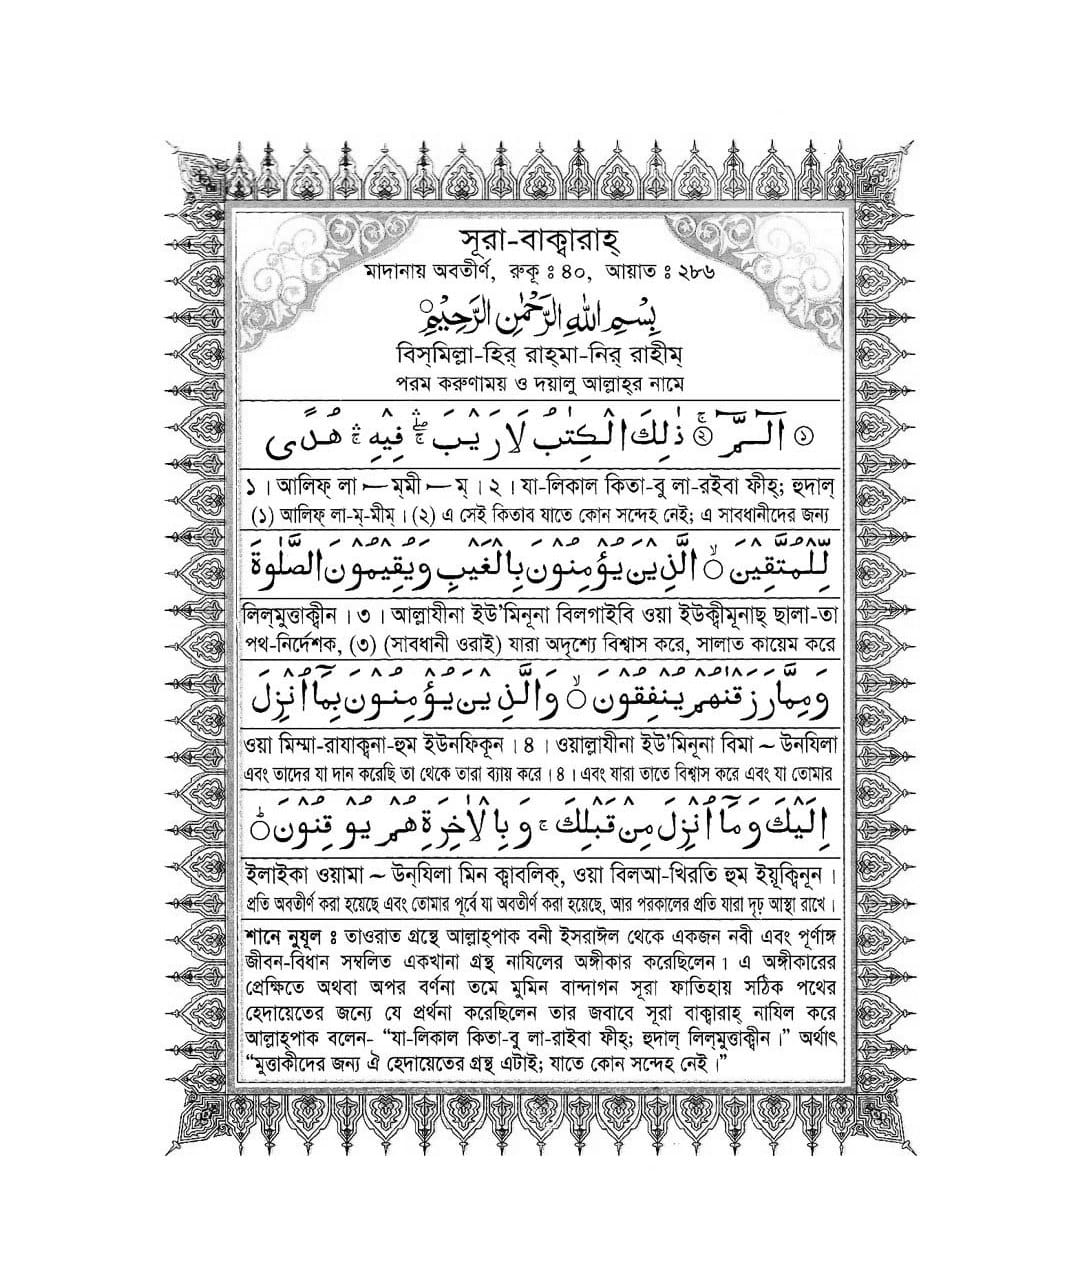 সূরা-বাক্বারাহ্
মাদানায় অবতীর্ণ, রুকূ ঃ ৪০, আয়াত ঃ ২৮৬
بِسْمِ اللهِ الرَّحْمٰنِ الرَّحِيْمِ
বিস্‌মিল্লা-হির্ রাহ্‌মা-নির্ রাহীম্
পরম করুণাময় ও দয়ালু আল্লাহ্‌র নামে
১ الٓـمّٓ ۚ ২ ذٰلِكَ الْكِتٰبُ لَا رَيْبَ ۛۚ فِيْهِ ۛۚ هُدًى
১। আলিফ্ লা — ম্‌মী — ম্। ২। যা-লিকাল কিতা-বু লা-রইবা ফীহ্; হুদাল্
(১) আলিফ্ লা-ম্-মীম্। (২) এ সেই কিতাব যাতে কোন সন্দেহ নেই; এ সাবধানীদের জন্য
لِّلْمُتَّقِيْنَ ۙ○ الَّذِيْنَ يُؤْمِنُوْنَ بِالْغَيْبِ وَيُقِيْمُوْنَ الصَّلٰوةَ
লিল্‌মুত্তাক্বীন। ৩। আল্লাযীনা ইউ’মিনূনা বিলগাইবি ওয়া ইউক্বীমূনাছ্ ছালা-তা
পথ-নির্দেশক, (৩) (সাবধানী ওরাই) যারা অদৃশ্যে বিশ্বাস করে, সালাত কায়েম করে
وَمِمَّا رَزَقْنٰهُمْ يُنْفِقُوْنَ ۙ○ وَالَّذِيْنَ يُؤْمِنُوْنَ بِمَآ اُنْزِلَ
ওয়া মিম্মা-রাযাক্বনা-হুম ইউনফিকূন। ৪। ওয়াল্লাযীনা ইউ’মিনূনা বিমা ~ উনযিলা
এবং তাদের যা দান করেছি তা থেকে তারা ব্যায় করে। ৪। এবং যারা তাতে বিশ্বাস করে এবং যা তোমার
اِلَيْكَ وَمَآ اُنْزِلَ مِنْ قَبْلِكَ ۚ وَبِالْاٰخِرَةِ هُمْ يُوْقِنُوْنَ ؕ○
ইলাইকা ওয়ামা ~ উন্‌যিলা মিন ক্বাবলিক্, ওয়া বিলআ-খিরতি হুম ইয়ূক্বিনূন।
প্রতি অবতীর্ণ করা হয়েছে এবং তোমার পূর্বে যা অবতীর্ণ করা হয়েছে, আর পরকালের প্রতি যারা দৃঢ় আস্থা রাখে।
শানে নুযূল ঃ তাওরাত গ্রন্থে আল্লাহ্‌পাক বনী ইসরাঈল থেকে একজন নবী এবং পূর্ণাঙ্গ
জীবন-বিধান সম্বলিত একখানা গ্রন্থ নাযিলের অঙ্গীকার করেছিলেন। এ অঙ্গীকারের
প্রেক্ষিতে অথবা অপর বর্ণনা তমে মুমিন বান্দাগন সূরা ফাতিহায় সঠিক পথের
হেদায়েতের জন্যে যে প্রর্থনা করেছিলেন তার জবাবে সূরা বাক্বারাহ্ নাযিল করে
আল্লাহ্‌পাক বলেন- “যা-লিকাল কিতা-বু লা-রাইবা ফীহ্; হুদাল্ লিল্‌মুত্তাক্বীন।” অর্থাৎ
“মুত্তাকীদের জন্য ঐ হেদায়েতের গ্রন্থ এটাই; যাতে কোন সন্দেহ নেই।”